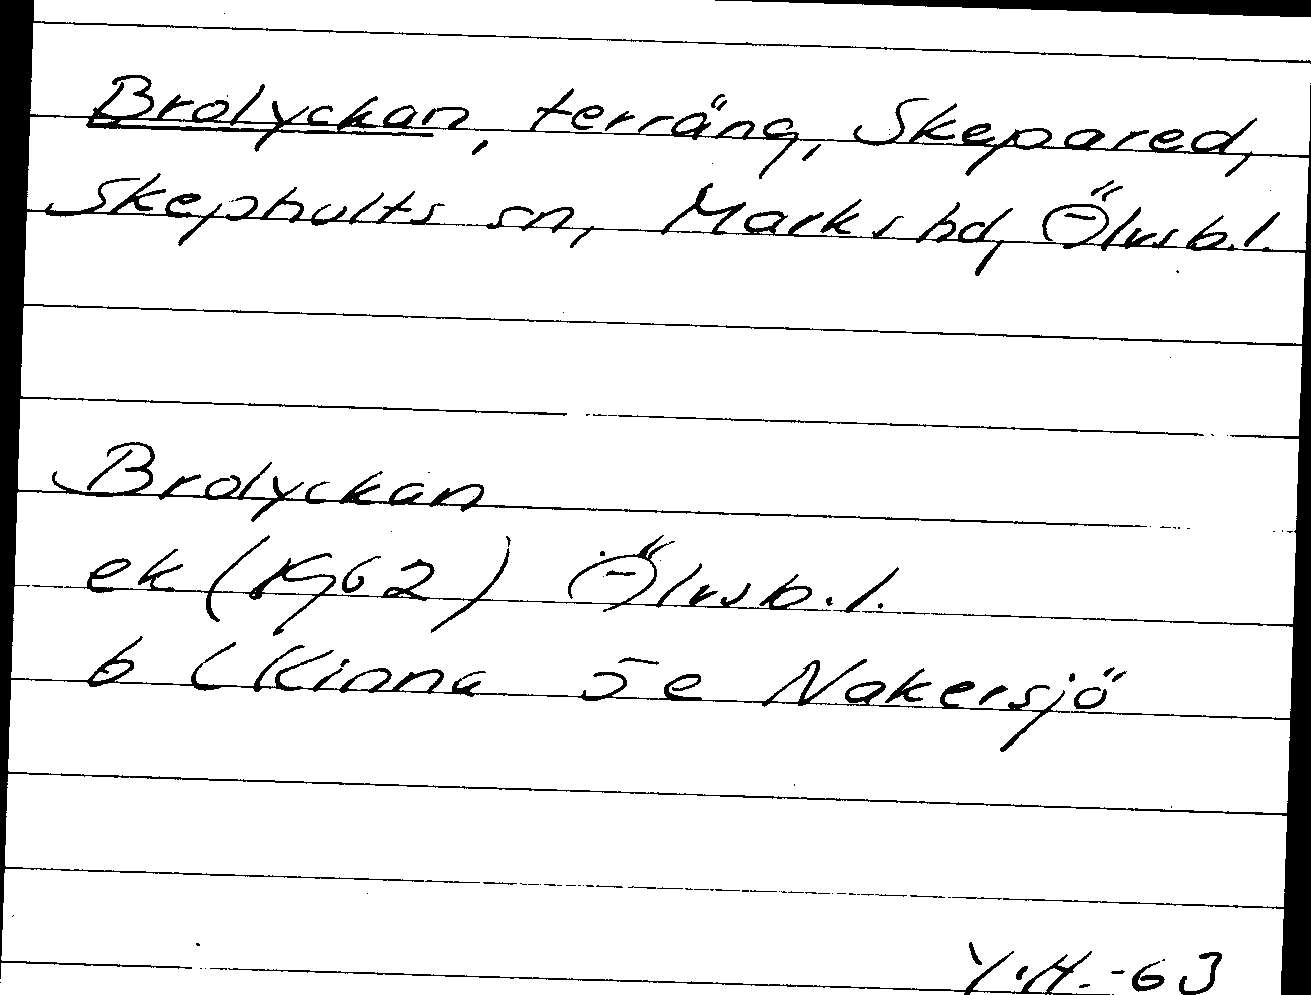 Brolyckan, terräng, Skepared,
Skephults sn, Marks hd, Älvsb.l.
Brolyckan
ek (1962) Älvsb.l.
6 C Kinna 5 e Nakersjö
Y.H.-63